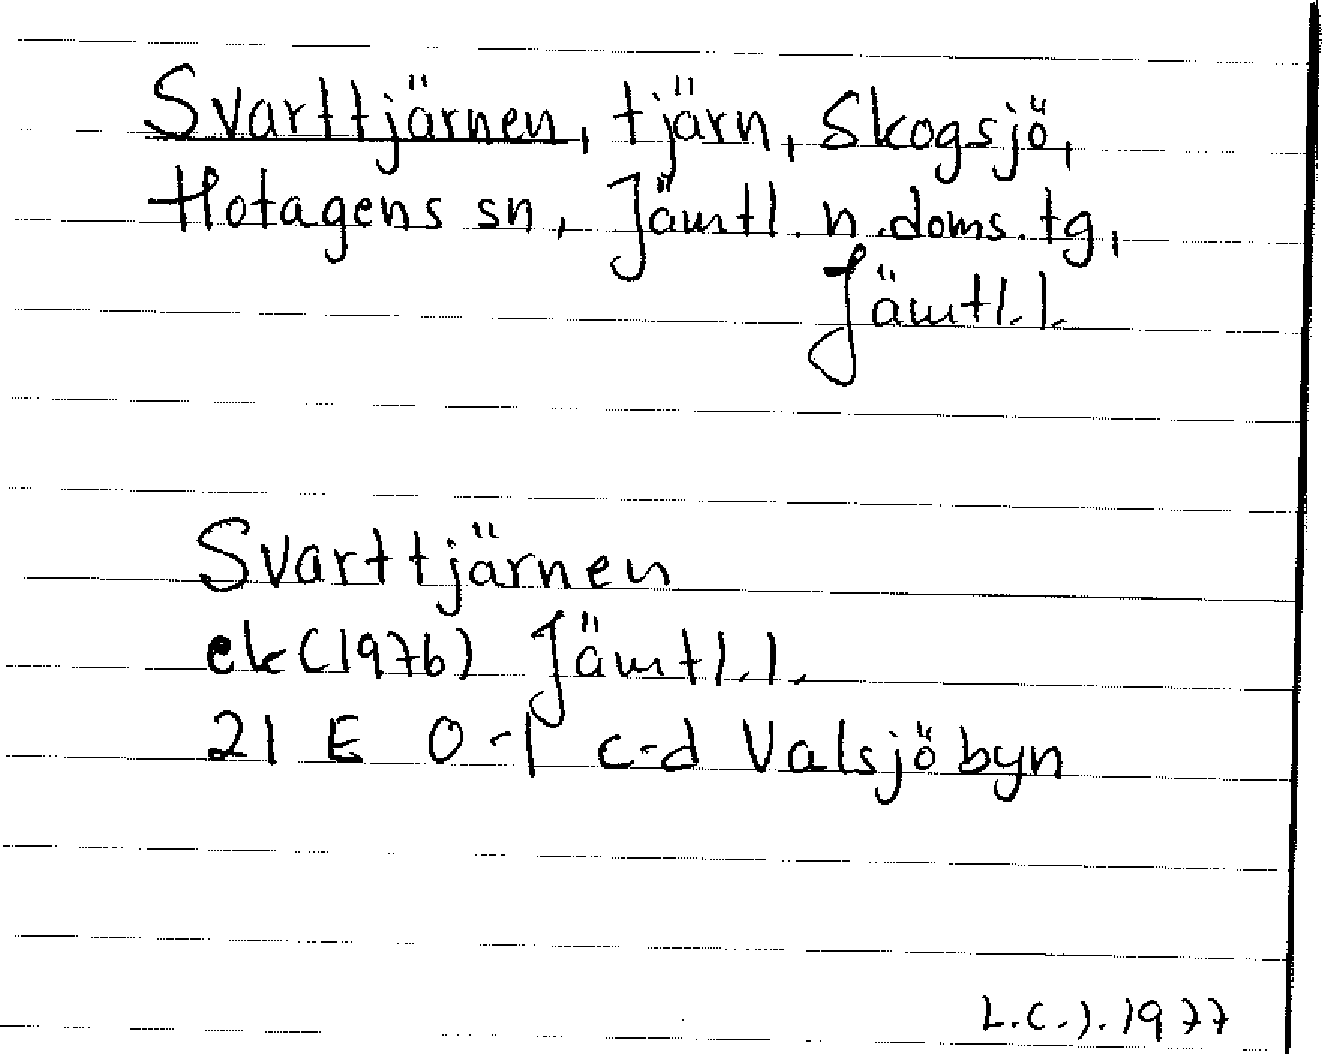 Svarttjärnen, tjärn, Skogsjö,
Hotagens sn, Jämtl. n. doms. tg,
Jämtl. l.
Svarttjärnen
ek (1976) Jämtl. l.
21 E 0-1 c-d Valsjöbyn
L.C.J. 1977